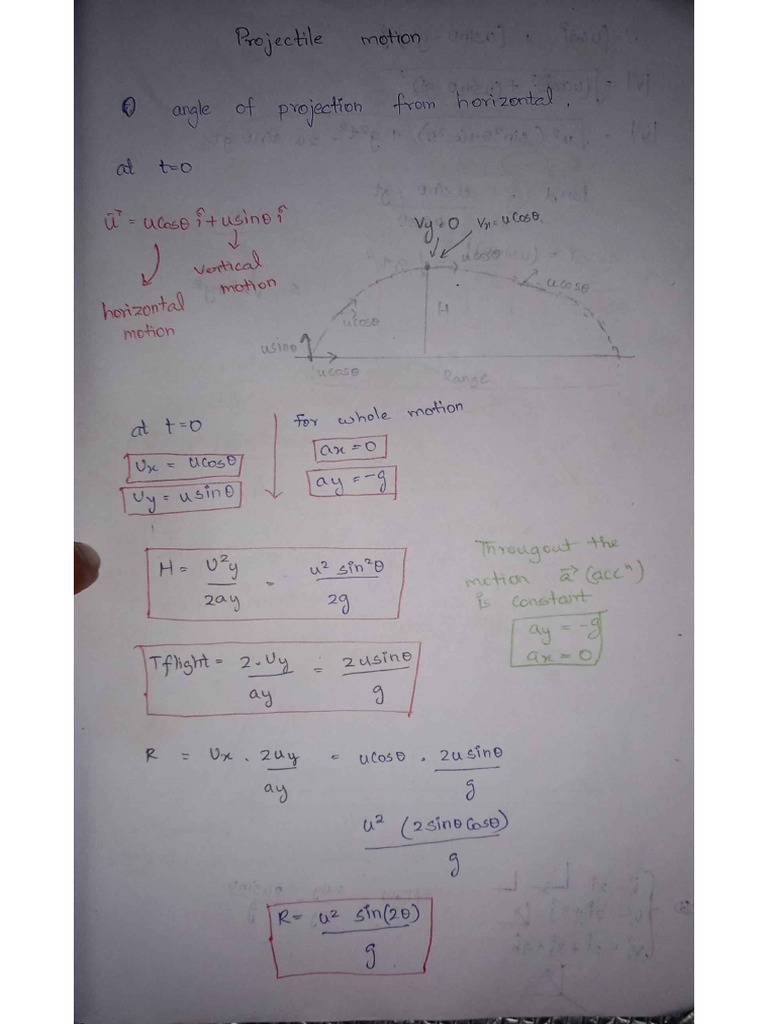 Projectile motion
θ angle of projection from horizontal.
at t=0
u⃗ = ucosθ î + usinθ î
vertical motion
horizontal motion
Vy=0 Vx=ucosθ
ucosθ
ucosθ
H
ucosθ
usinθ
ucosθ
Range
at t=0
Ux = ucosθ
Uy = usinθ
for whole motion
ax=0
ay=-g
H = U²y / 2ay = u² sin²θ / 2g
Througout the
motion a⃗ (accⁿ)
is constant
ay = -g
ax = 0
Tflight = 2.Uy / ay = 2usinθ / g
R = Ux . 2uy / ay = ucosθ . 2usinθ / g
u² (2sinθcosθ) / g
R= u² sin(2θ) / g